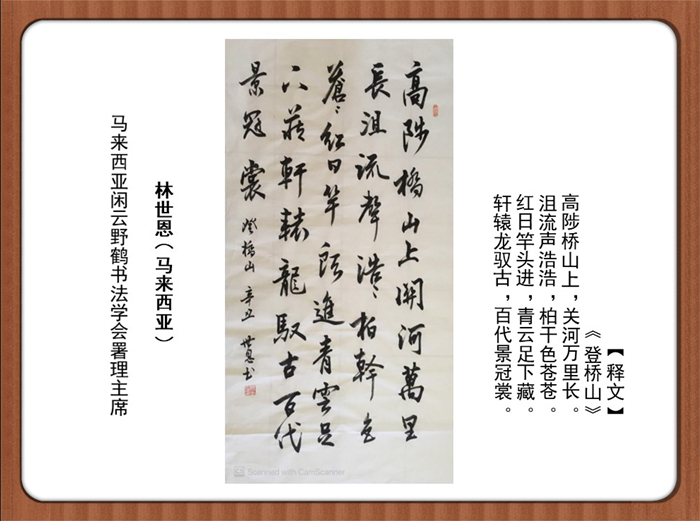 【释文】
《登桥山》
高陟桥山上，关河万里长。
沮流声浩浩，柏干色苍苍。
红日竿头进，青云足下藏。
轩辕龙驭古，百代景冠裳。
高陟橋山上開河萬里
長沮流聲浩〻柏幹色
蒼〻紅日竿頭進青雲足
下藏軒轅龍馭古百代
景冠裳 登橋山 辛丑 世恩书
林世恩（马来西亚）
马来西亚闲云野鹤书法学会署理主席
CS Scanned with CamScanner